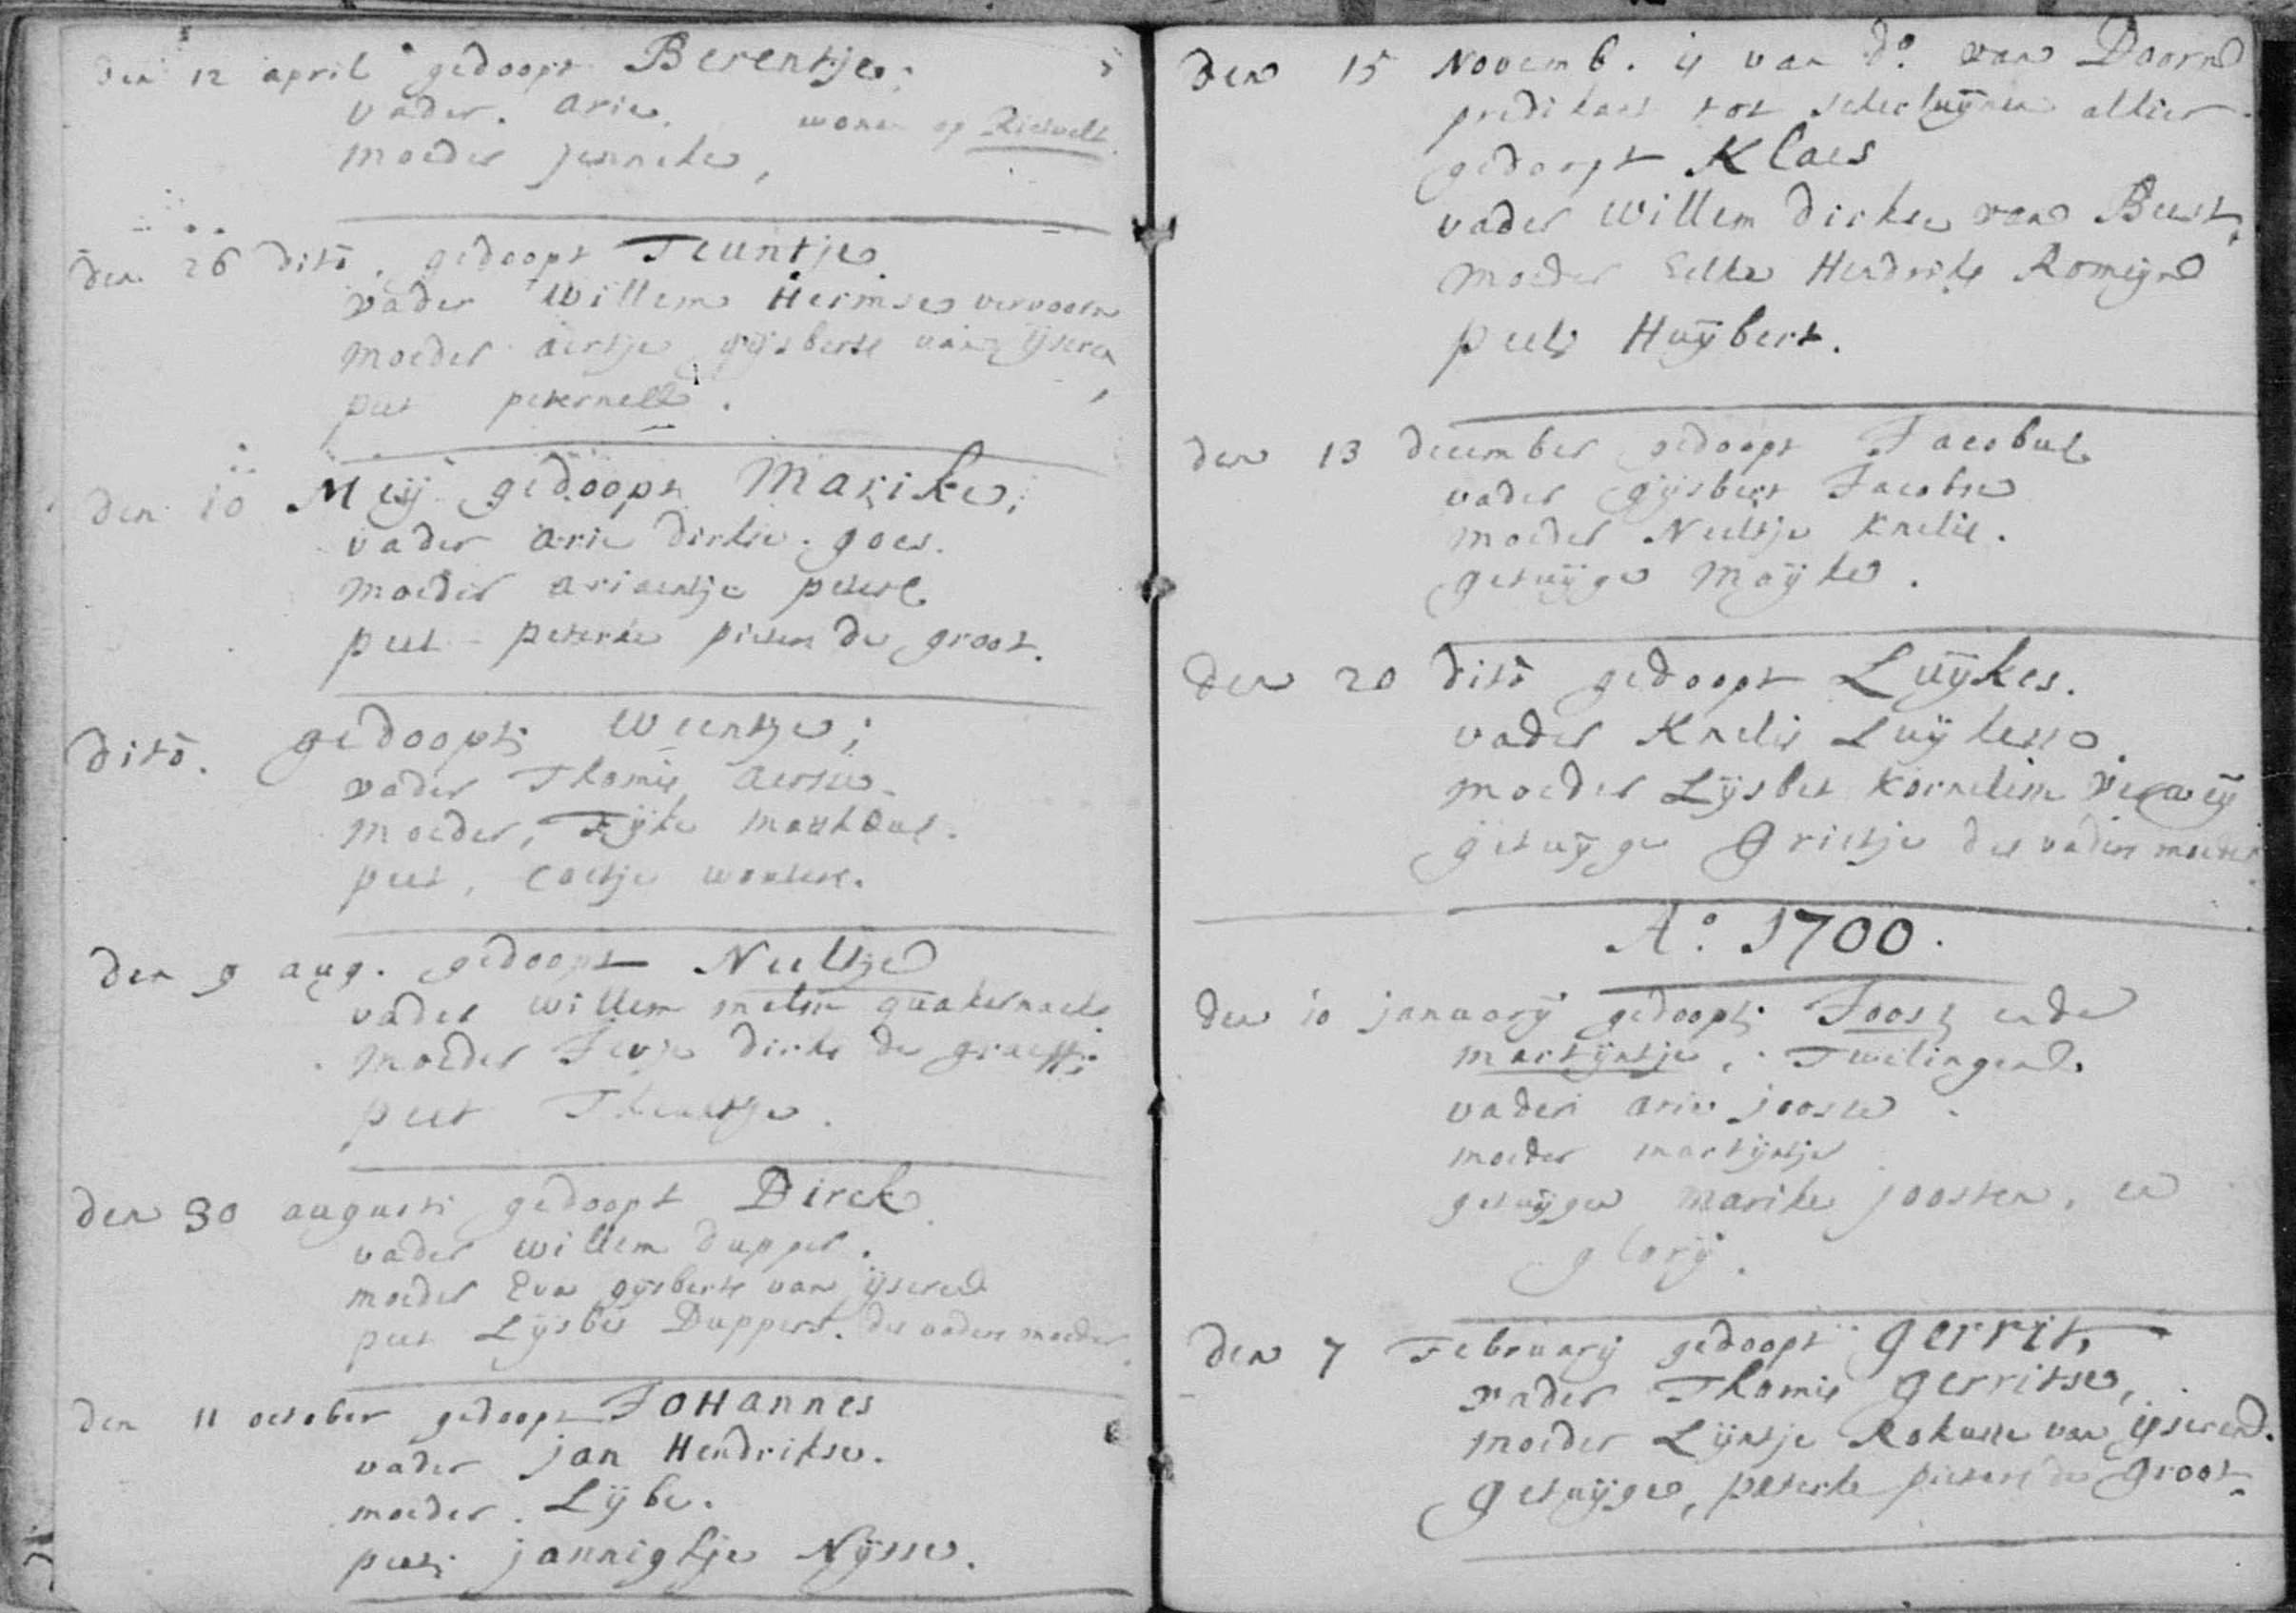 den 12 april gedoopt Berentje,
vader. arie. wonen op Rietvelt
moeder jenneke,
den 26 dito, gedoopt Teuntje
vader Willem Hermse vervoorn
moeder aertje gijsberts van ijseren
peet peternell.
den 10 Meij gedoopt Marike,
vader arie dirkse. goes.
moeder ariaentje peters
peet peterke pieters de groot.
dito. gedoopt Weentje;
vader Thomis aerse.
moeder, Fijke
peet, wouters.
den 9 aug. gedoopt Neeltje
vader Willem quakernaek
moeder dirks de graeff;
peet Theuntje.
den 30 augusti gedoopt Dirck
vader Willem dupper.
moeder Eva gijsberts van ijseren
peet Lijsbet Duppers. des vaders moeder
den 11 october gedoopt JOHannes
vader jan Hendrikse.
moeder. Lijbe.
peet jannigtje Nijsse.
den 15 Novemb. is van do. van Doorn
predikant tot schelluijnen alhier
gedoopt Klaes
vader Willem dirkse van Beest,
moeder Eelke Hendriks Romeijn
peet Huijbert.
den 13 december gedoopt Jacobus
vader gijsbert Jacobse
moeder Neeltje Knelis.
getuijge Maijke.
den 20 dito gedoopt Luijkes.
vader Knelis Luijkesse.
moeder Lijsbet Kornelisse
getuijge Grietje des vaders moeder
Ao. 1700.
den 10 januarij gedoopt Joost ende
martijntje, Twelingen.
vader arie jooste
moeder martijntje
getuijgen marike joosten, en
glorij.
den 7 Februarij gedoopt gerrit,
vader Thomis gerritse,
moeder Lijntje Rokusse van ijseren.
Getuijge, peterke pieters de Groot